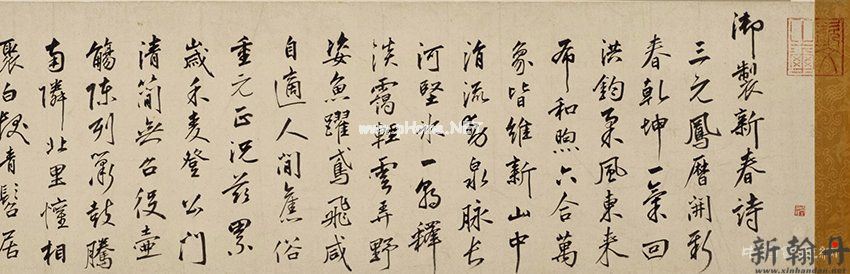 御製新春詩
三元鳳曆開新
春乾坤一氣回
洪鈞柔風東來
布和煦六合萬
象皆維新山中
涓流動泉脉長
河堅冰一朝釋
淡靄輕雲弄野
姿魚躍鳶飛咸
自適人間舊俗
重元正況茲累
歲禾麥登公門
清簡無召役壺
觴陳列簫鼓騰
南隣北里懽相
聚白髮青髫居
www.pHome.NET
新翰丹
www.xinhandan.net